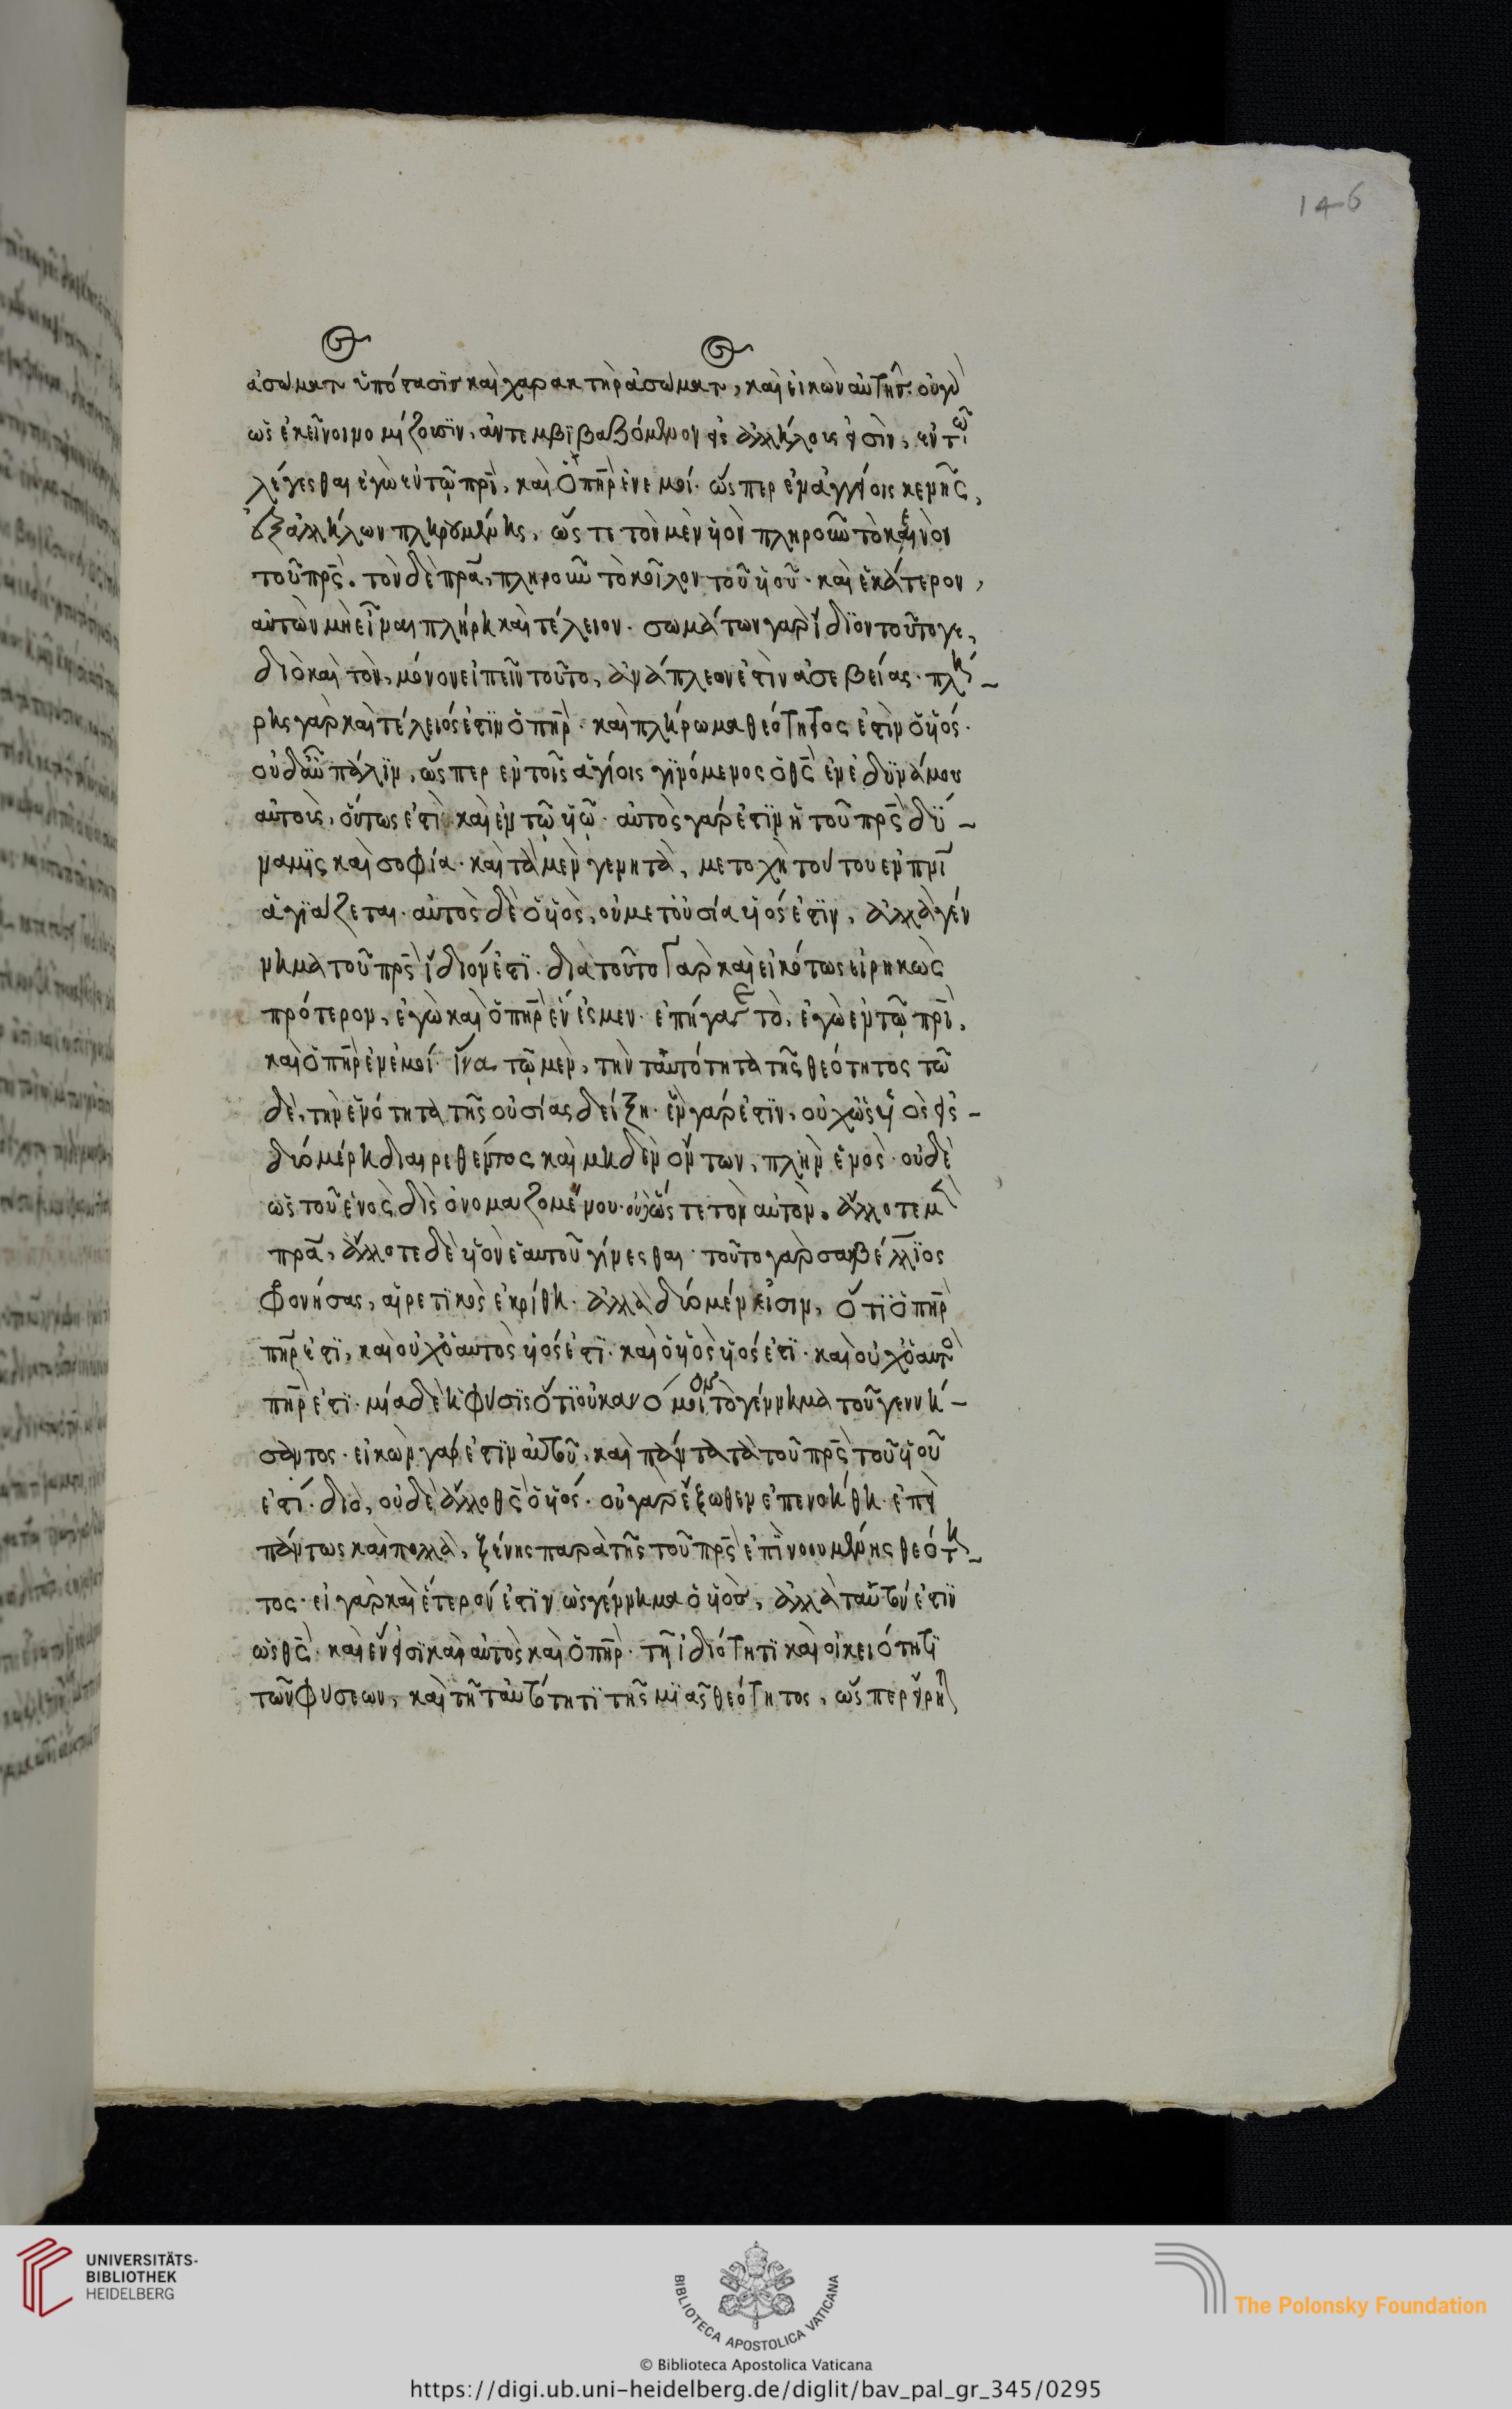 146
ἀσωμάτου ὑπόστασϊς καὶ χαρακτὴρ ἀσωμάτου, καὶ εἰκὼν αὐτῆς. οὐ γὰρ
ὡς ἐκεῖνοι νομίζουσϊν, ἀντεμβϊβαζόμενον εἰς ἀλλήλους εἰσὶν, ἐν τῶ
λέγεσθαι ἐγὼ ἐν τῷ πρὶ, καὶ ὁ πὴρ ἐν ἐμοί. ὥσπερ ἐν ἀγγείοις κενῆς,
ἐξ ἀλλήλων πληρουμένης, ὥστε τὸν μὲν ὑϊὸν πληροῦν τὸ κενὸν
τοῦ πρς. τὸν δὲ πρα, πληροῦν τὸ κοῖλον τοῦ υἱοῦ. καὶ ἑκάτερον,
αὐτῶν μὴ εἶναι πλήρη καὶ τέλειον. σωμάτων γὰρ ἴδϊον τοῦτό γε,
διὸ καὶ τὸν, μόνον εἰπεῖν τοῦτο, ἀνάπλεον ἐστὶν ἀσεβείας. πλή-
ρης γὰρ καὶ τέλειός ἐστϊν ὁ πὴρ. καὶ πλήρωμα θεότητος ἐστὶν ὁ υἱός.
οὐδ' αὖ πάλϊν, ὥσπερ ἐν τοῖς ἁγίοις γϊνόμενος ὁ θς ἐνεδϋνάμου
αὐτοὺς, οὕτως ἐστὶ καὶ ἐν τῷ υἱῷ. αὐτὸς γάρ ἐστϊν ἡ τοῦ πρς δύ-
ναμϊς καὶ σοφία. καὶ τὰ μὲν γενητὰ, μετοχῆ τούτου ἐν πνι
ἁγϊάζεται. αὐτὸς δὲ ὁ υἱὸς, οὐ μετουσία υἱός ἐστϊν, ἀλλὰ γέν
νημα τοῦ πρς ἴδιον ἐστϊ. διὰ τοῦτο γὰρ καὶ εἰκότως εἰρηκὼς
πρότερον, ἐγὼ καὶ ὁ πὴρ ἕν ἐσμεν. ἐπήγαγε τὸ, ἐγὼ ἐν τῷ πρὶ,
καὶ ὁ πὴρ ἐν ἐμοί. ἵνα τῷ μὲν, τὴν ταυτότητα τῆς θεότητος τῶ
δὲ, τὴν ἑνότητα τῆς οὐσίας δείξη. ἓν γάρ ἐστϊν, οὐχ ὡς ἑνὸς εἰς-
δύο μέρη διαιρεθέντος καὶ μηδὲν ὄντων, πλὴν ἑνὸς. οὐδὲ
ὡς τοῦ ἑνὸς δὶς ὀνομαζομένου. οὐχ ὥστε τὸν αὐτὸν. ἄλλοτε μὲν
πρα, ἄλλοτε δὲ υἱὸν ἑαυτοῦ γίνεσθαι. τοῦτο γὰρ σαβέλλϊος
φρονήσας, αἱρετϊκὸς ἐκρίθη. ἀλλὰ δύο μέν εἰσιν, ὅτϊ ὁ πὴρ
πὴρ ἐστϊ, καὶ οὐχ ὁ αυτὸς υἱός ἐστϊ. καὶ ὁ υἱὸς υἱός ἐστϊ. καὶ οὐχ ὁ αυτὸς
πὴρ ἐστϊ. μία δὲ ἡ φύσϊς ὅτϊ οὐκ ἀνόμοιον τὸ γέννημα τοῦ γεννή-
σαντος. εἰκὼν γάρ ἐστϊν αὐτοῦ, καὶ πάντα τὰ τοῦ πρς τοῦ υἱοῦ
ἐστί. διὸ, οὐδὲ ἄλλος θς ὁ υἱός. οὐ γὰρ ἔξωθεν ἐπενοήθη. ἐπεὶ
πάντως καὶ πολλὰ, ξένης παρὰ τῆς τοῦ πρς ἐπϊνοουμένης θεότη-
τος. εἰ γὰρ καὶ ἕτερόν ἐστϊν ὡς γέννημα ὁ υἱὸς, ἀλλὰ ταυτόν ἐστϊν
ὡς θς. καὶ ἕν εἰσϊ καὶ αὐτὸς καὶ ὁ πὴρ. τῆ ἰδιότητϊ καὶ οἰκειότητϊ
τῶν φύσεων, καὶ τῆ ταυτότητϊ τῆς μϊᾶς θεότητος, ὥσπερ εἴρηται
UNIVERSITÄTS-
BIBLIOTHEK
HEIDELBERG
BIBLIOTECA APOSTOLICA VATICANA
The Polonsky Foundation
© Biblioteca Apostolica Vaticana
https://digi.ub.uni-heidelberg.de/diglit/bav_pal_gr_345/0295